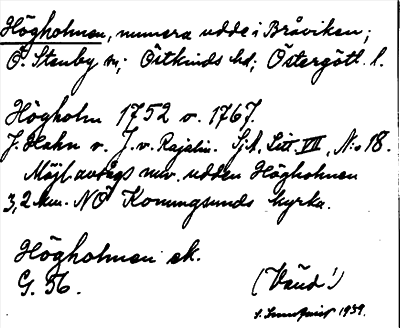 Högholmen, numera udde i Bråviken;
Ö. Stenby sn; Östkinds hd; Östergötl. l.
Högholm 1752 o. 1767.
J. Hahn o. J. v. Rajalin. Sj.k. Litt. VII, N:o 18.
Möjl. avses nuv. udden Högholmen
3,2 km. NO Konungsunds kyrka.
Högholmen ek.
G. 56.
(Vänd!)
1939.